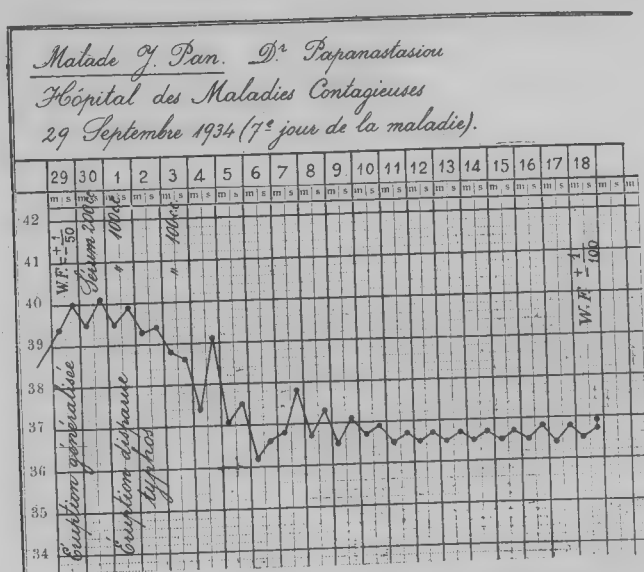 Malade J. Pan. Dr Papanastasiou
Hôpital des Maladies Contagieuses
29 Septembre 1934 (7e jour de la maladie).
29 30 1 2 3 4 5 6 7 8 9 10 11 12 13 14 15 16 17 18
m s m s m s m s m s m s m s m s m s m s m s m s m s m s m s m s m s m s m s m s m s m
42
41
40
39
38
37
36
35
34
W.F. = + 1/50
Sérum 200 cc.
" 100 c.c.
" 100 c.c.
W.F. ± 1/100
Éruption généralisée
Éruption disparue
typhos